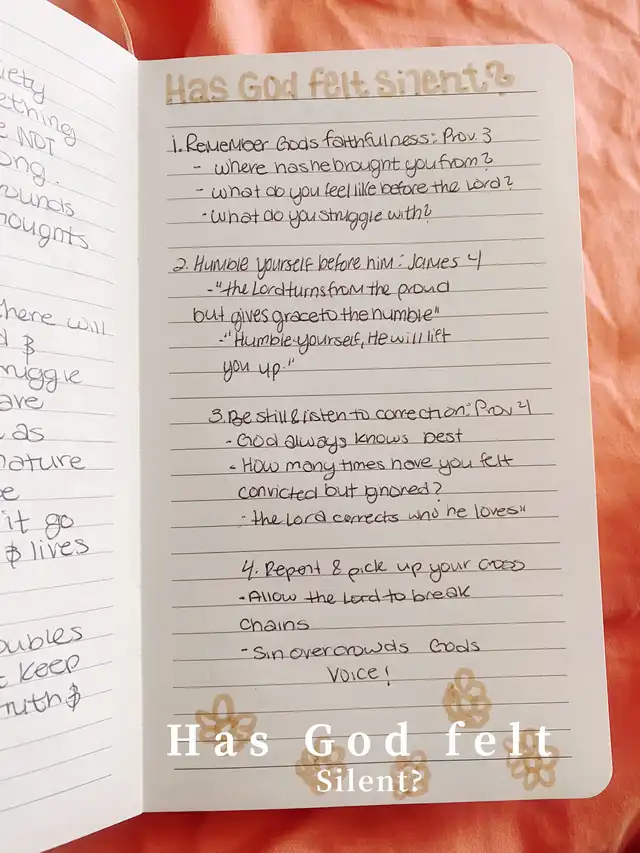 iety
ething
e NOT
ong.
ounds
houghts
here will
d $
ruggle
ave
as
nature
e
it go
$ lives
oubles
t keep
ruth $
Has God felt silent?
1. Remember Gods faithfulness: Prov. 3
- where has he brought you from?
- what do you feel like before the Lord?
- what do you struggle with?
2. Humble yourself before him: James 4
- "the Lord turns from the proud
but gives grace to the humble"
- "Humble yourself, He will lift
you up."
3. Be still & listen to correction: Prov 4
- God always knows best
- How many times have you felt
convicted but ignored?
- the Lord corrects who he loves"
4. Repent & pick up your cross
- Allow the Lord to break
chains
- Sin overcrowds Gods
voice!
Has God felt
Silent?